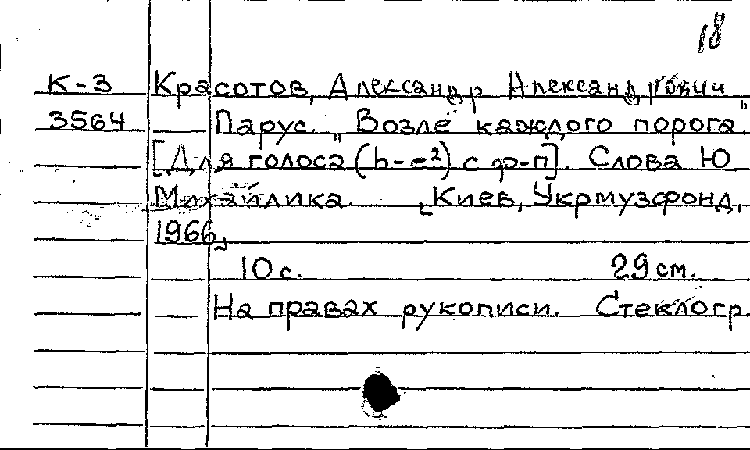 18
К-3 Красотов, Александр Александрович
3564 Парус. „Возле каждого порога"
[Для голоса (h-e²) с ф-п]. Слова Ю
Михайлика. [Киев, Укрмузфонд,
1966]
10 с. 29 см.
На правах рукописи. Стеклогр.